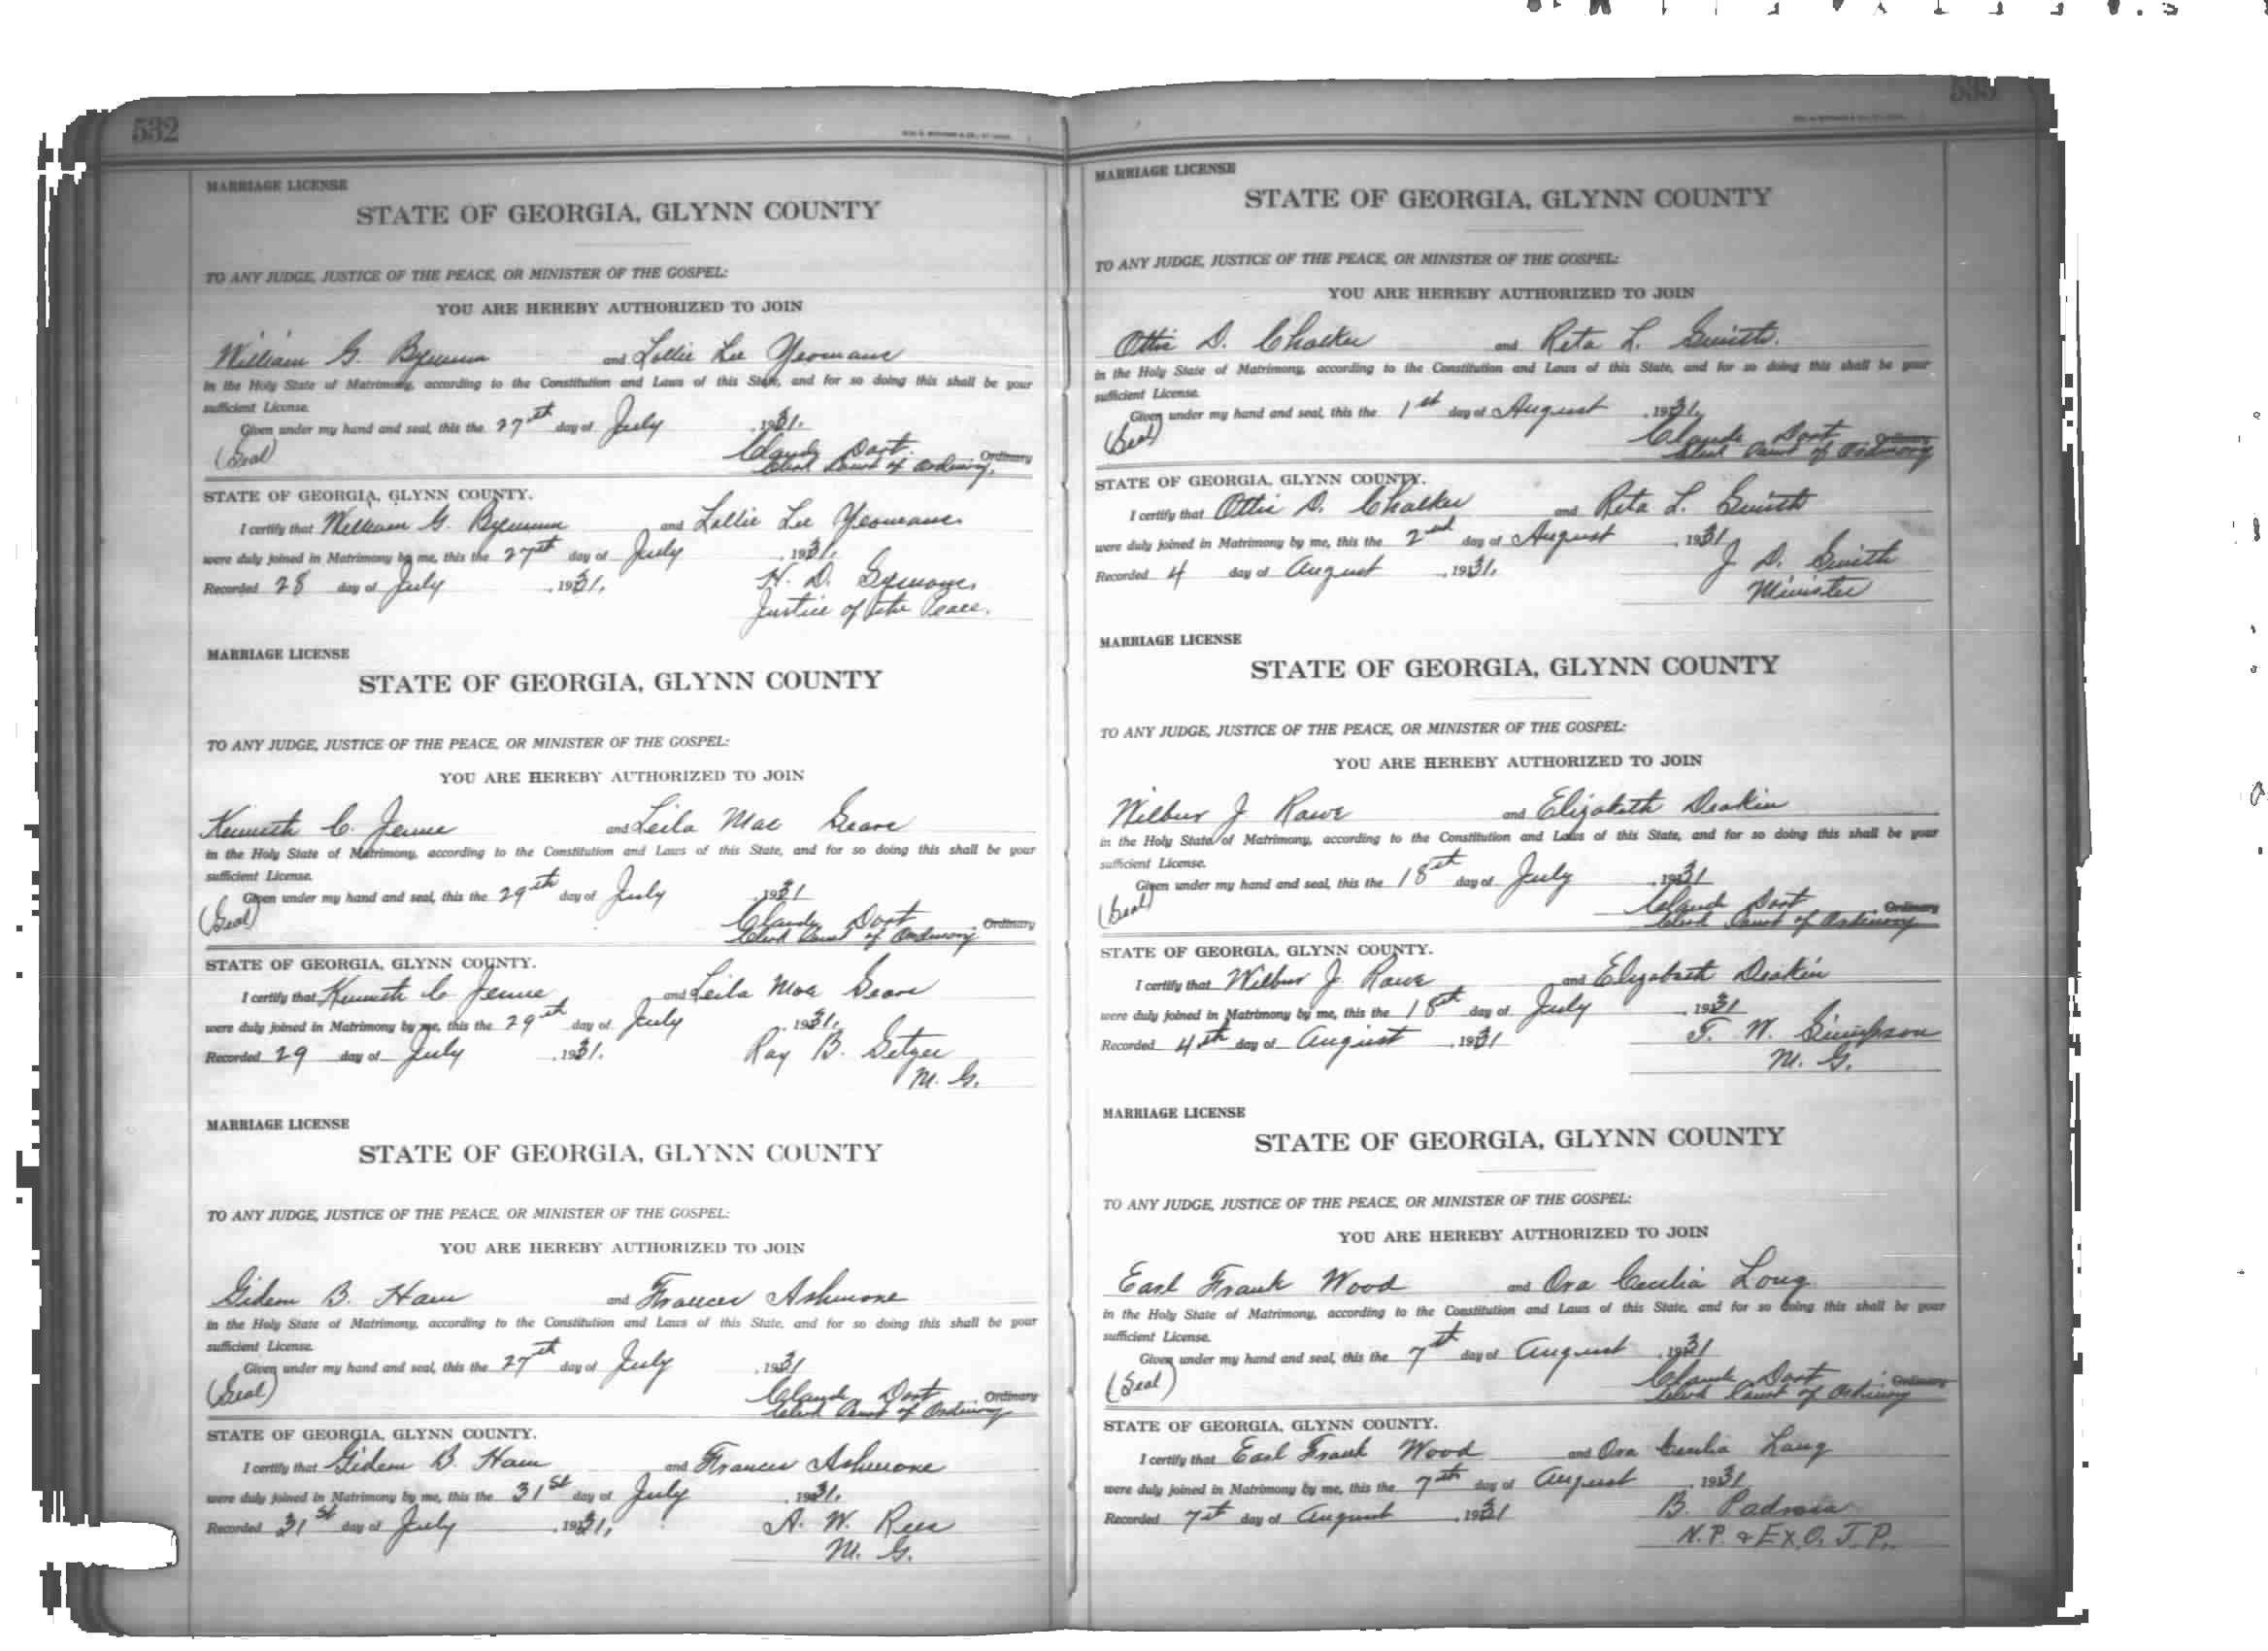 532
MARRIAGE LICENSE
STATE OF GEORGIA, GLYNN COUNTY
TO ANY JUDGE, JUSTICE OF THE PEACE, OR MINISTER OF THE GOSPEL:
YOU ARE HEREBY AUTHORIZED TO JOIN
William G. Bynum and Lollie Lee Yeomans
in the Holy State of Matrimony, according to the Constitution and Laws of this State, and for so doing this shall be your
sufficient License.
Given under my hand and seal, this the 27th day of July , 1931.
(Seal) Claude Dart. Ordinary
Clerk Court of Ordinary.
STATE OF GEORGIA, GLYNN COUNTY.
I certify that William G. Bynum and Lollie Lee Yeomans
were duly joined in Matrimony by me, this the 27th day of July , 1931.
Recorded 28 day of July , 1931. H. D.
Justice of the Peace.
MARRIAGE LICENSE
STATE OF GEORGIA, GLYNN COUNTY
TO ANY JUDGE, JUSTICE OF THE PEACE, OR MINISTER OF THE GOSPEL:
YOU ARE HEREBY AUTHORIZED TO JOIN
Kenneth C. and Leila Mae
in the Holy State of Matrimony, according to the Constitution and Laws of this State, and for so doing this shall be your
sufficient License.
Given under my hand and seal, this the 29th day of July , 1931
(Seal) Claude Dart Ordinary
Clerk Court of Ordinary
STATE OF GEORGIA, GLYNN COUNTY.
I certify that Kenneth C. and Leila Mae
were duly joined in Matrimony by me, this the 29th day of July , 1931.
Recorded 29 day of July , 1931. Ray B. Getzer
M. G.
MARRIAGE LICENSE
STATE OF GEORGIA, GLYNN COUNTY
TO ANY JUDGE, JUSTICE OF THE PEACE, OR MINISTER OF THE GOSPEL:
YOU ARE HEREBY AUTHORIZED TO JOIN
Gideon B. Ham and Frances Ashmore
in the Holy State of Matrimony, according to the Constitution and Laws of this State, and for so doing this shall be your
sufficient License.
Given under my hand and seal, this the 27th day of July , 1931
(Seal) Claude Dart Ordinary
Clerk Court of Ordinary
STATE OF GEORGIA, GLYNN COUNTY.
I certify that Gideon B. Ham and Frances Ashmore
were duly joined in Matrimony by me, this the 31st day of July , 1931.
Recorded 31st day of July , 1931. A. W. Rees
M. G.
MARRIAGE LICENSE
STATE OF GEORGIA, GLYNN COUNTY
TO ANY JUDGE, JUSTICE OF THE PEACE, OR MINISTER OF THE GOSPEL:
YOU ARE HEREBY AUTHORIZED TO JOIN
Ottis D. Chalker and Reta L. Smith.
in the Holy State of Matrimony, according to the Constitution and Laws of this State, and for so doing this shall be your
sufficient License.
Given under my hand and seal, this the 1st day of August , 1931.
(Seal) Claude Dart Ordinary
Clerk Court of Ordinary
STATE OF GEORGIA, GLYNN COUNTY.
I certify that Ottis D. Chalker and Reta L. Smith
were duly joined in Matrimony by me, this the 2nd day of August , 1931
Recorded 4 day of August , 1931. J D. Smith
Minister
MARRIAGE LICENSE
STATE OF GEORGIA, GLYNN COUNTY
TO ANY JUDGE, JUSTICE OF THE PEACE, OR MINISTER OF THE GOSPEL:
YOU ARE HEREBY AUTHORIZED TO JOIN
Wilbur J Rowe and Elizabeth Deakin
in the Holy State of Matrimony, according to the Constitution and Laws of this State, and for so doing this shall be your
sufficient License.
Given under my hand and seal, this the 18th day of July , 1931
(Seal) Claude Dart Ordinary
Clerk Court of Ordinary
STATE OF GEORGIA, GLYNN COUNTY.
I certify that Wilbur J Rowe and Elizabeth Deakin
were duly joined in Matrimony by me, this the 18th day of July , 1931
Recorded 4th day of August , 1931 T. W. Simpson
M. G.
MARRIAGE LICENSE
STATE OF GEORGIA, GLYNN COUNTY
TO ANY JUDGE, JUSTICE OF THE PEACE, OR MINISTER OF THE GOSPEL:
YOU ARE HEREBY AUTHORIZED TO JOIN
Earl Frank Wood and Ora Cecilia Long
in the Holy State of Matrimony, according to the Constitution and Laws of this State, and for so doing this shall be your
sufficient License.
Given under my hand and seal, this the 7th day of August , 1931
(Seal) Claude Dart Ordinary
Clerk Court of Ordinary
STATE OF GEORGIA, GLYNN COUNTY.
I certify that Earl Frank Wood and Ora Cecilia Long
were duly joined in Matrimony by me, this the 7th day of August , 1931
Recorded 7th day of August , 1931 B. Padrosa
N.P. & EX. O. J.P.